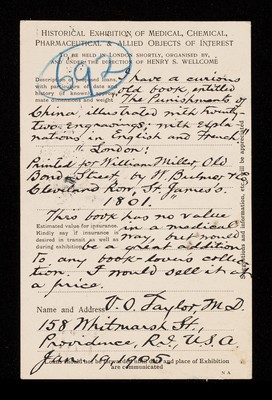 HISTORICAL EXHIBITION OF MEDICAL, CHEMICAL,
PHARMACEUTICAL & ALLIED OBJECTS OF INTEREST
TO BE HELD IN LONDON SHORTLY, ORGANISED BY,
AND UNDER THE DIRECTION OF HENRY S. WELLCOME
692
I have a curious
old book, entitled
The Punishments of
China, illustrated with twenty
two Engravings; with expla
nations in English and French
London:
Printed for William Miller, Old
Bond Street by W. Bulmer & Co
Cleveland Row, St. James's.
1801.
This book has no value
Estimated value for insurance.
in a medical
Kindly say if insurance is
desired in transit as well as
during exhibition
way, but would
be a great addition
to any book-lovers collec
tion. I would sell it at
a price.
Name and Address V. O. Taylor, M.D.
158 Whitmarsh St.,
Providence, R.I., U.S.A.
Jan. 19, 1905.
Suggestions and information, etc., will be appreciated